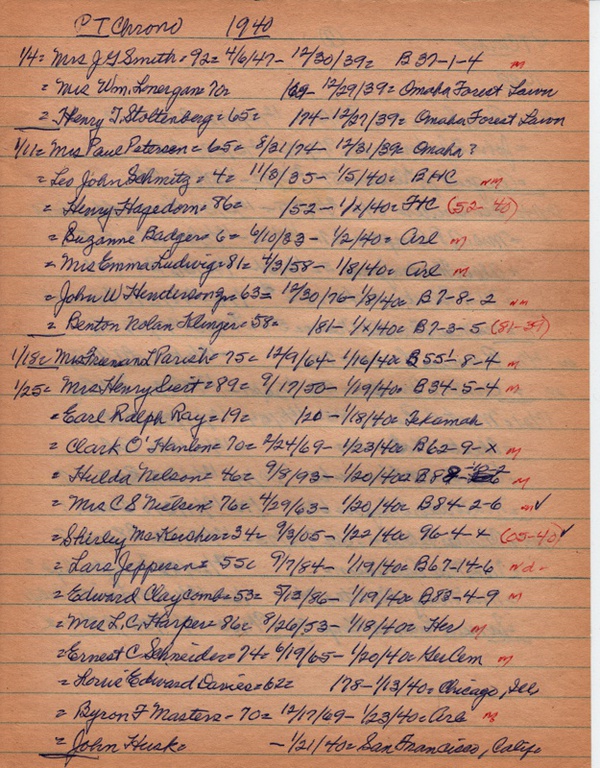 P T Chrono 1940
1/4= Mrs J G Smith= 92= 4/6/47- 12/30/39= B 37-1-4 m
= Mrs Wm Lonergan= 70= /69- 12/29/39= Omaha Forest Lawn
= Henry T. Stoltenberg= 65= /74- 12/27/39= Omaha Forest Lawn
1/11= Mrs Paul Petersen= 65= 8/31/74- 12/31/39= Omaha?
= Leo John Schmitz= 4= 11/8/35- 1/5/40= BHC nm
= Henry Hagedorn= 86= /52- 1/x/40= FHC (52-40)
= Suzanne Badger= 6= 6/10/33- 1/2/40= Arl m
= Mrs Emma Ludwig= 81= 4/3/58- 1/8/40= Arl m
= John W Henderson 63= 12/30/76- 1/8/40= B7-8-2 nm
= Benton Nolan Klinger= 58= /81- 1/x/40= B7-3-5 (81-39)
1/18= Mrs L Parish= 75= 12/9/64- 1/16/40= B55 1/2-8-4 m
1/25= Mrs Henry Siert= 89= 9/17/50- 1/19/40= B34-5-4 m
= Earl Ralph Ray= 19= /20- 1/18/40= Tekamah
= Clark O'Hanlon= 70= 2/24/69- 1/23/40= B62-9-x m
= Hulda Nelson= 46= 9/8/93- 1/20/40= m
= Mrs C S Nielsen= 76= 4/29/63- 1/20/40= B84-2-6 m✓
= Shirley McKercher= 34= 9/3/05- 1/22/40= 96-4-x (05-40)✓
= Lars Jeppesen= 55= 9/7/84- 1/19/40= B67-14-6 nd-
= Edward Claycomb= 53= 5/13/86- 1/19/40= B83-4-9 m
= Mrs L. C. Harper= 86= 8/26/53- 1/18/40= Her m
= Ernest C Schneider= 74= 6/19/65- 1/20/40= GerCem m
= Edward Davies= 62= /78- 1/13/40= Chicago, Ill
= Byron F Masters= 70= 12/17/69- 1/23/40= Arl m
= John Husk= - 1/21/40= San Francisco, Calif